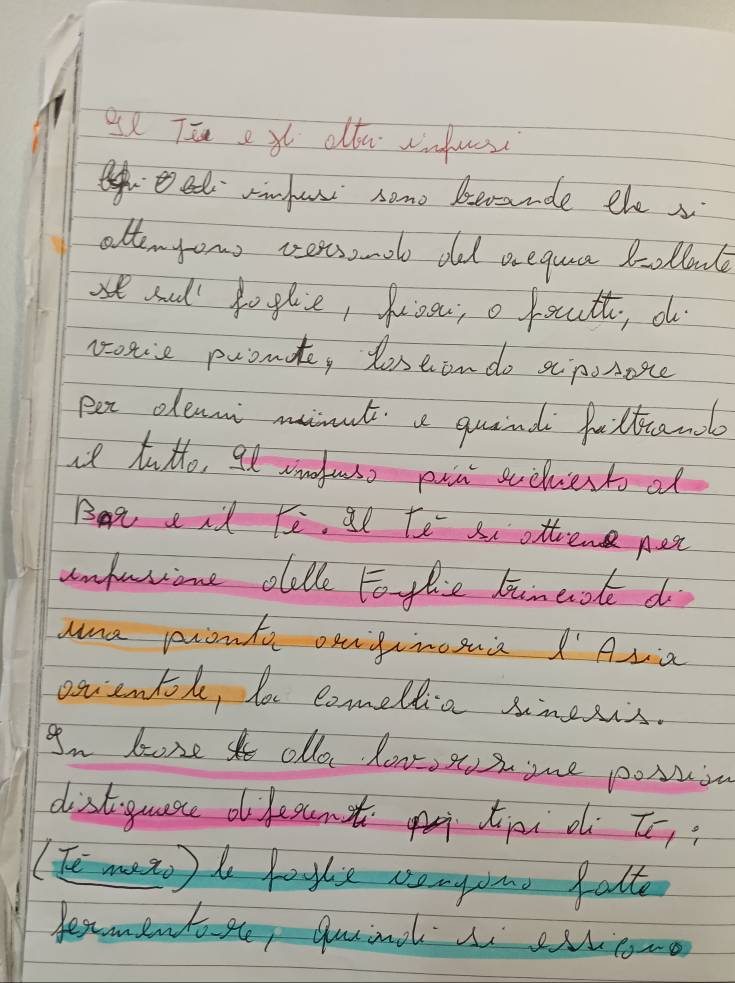 Il Tè e gli altri infusi
infusi sono bevande che si
ottengono versando del acqua bollente
sul foglie, fiori, o frutti, di
varie piante, lasciando riposare
per alcuni minuti e quindi filtrando
il tutto. Il infuso più richiesto al
Bar e il tè. Il Tè si ottiene per
infusione delle Foglie trinciate di
una pianta originaria l'Asia
orientale, la camellia sinesis.
In base alla lavorazione possiam
distiguere diferenti tipi di Tè,:
(Tè nero) le foglie vengono fatte
fermentare, quindi si essicano